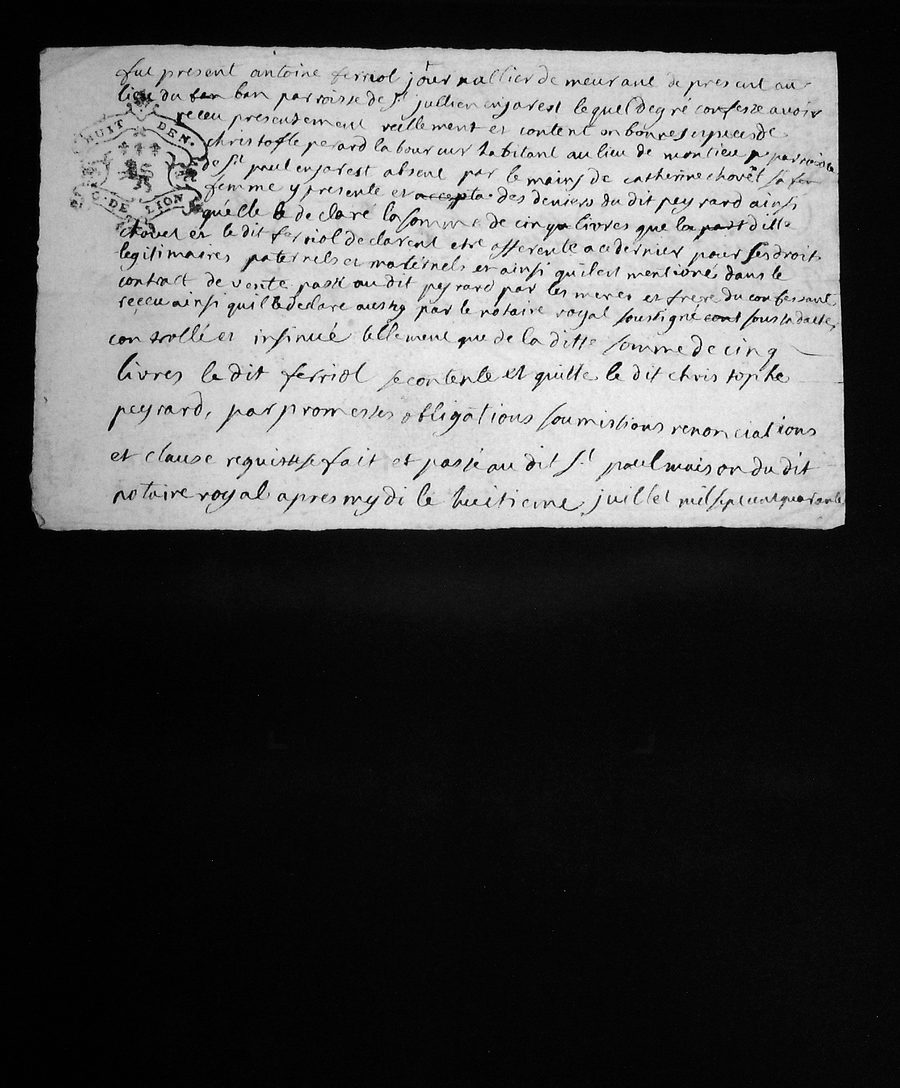 fut present antoine ferriol jour nallier de meurane de present au
lieu du ban ban parroisse de st jullien enjarest lequel de gré confesse avoir
receu presentement reellement et content en bonnes espuces de
HUIT DEN.
christofle perard laboureur habitant au lieu de montieu p parroisse
de st paul enjarest absent par le mains de catherine chovet sa fer
femme y presente et accepta des deniers du dit peyrard ainsi
G. DE LION
quelle le declare la somme de cinq livres que la part ditte
chovet et le dit ferriol declarent etre afferente ace dernier pour ses droits
legitimaires paternels et maternels et ainsi quil est mentioné dans le
contract de vente passé au dit peyrard par les meres et frere du confessant
reçeu ainsi quil le declare aussy par le notaire royal soussigné cont sous sa datte,
controllé et insinué tellement que de la ditte somme de cinq
livres le dit ferriol se contente et quitte le dit christophe
peyrard, par promesses obligations soumissions renonciations
et clause requise fait et passé au dit st paul maison du dit
notaire royal apres mydi le huitieme juillet mil sept cent quarante